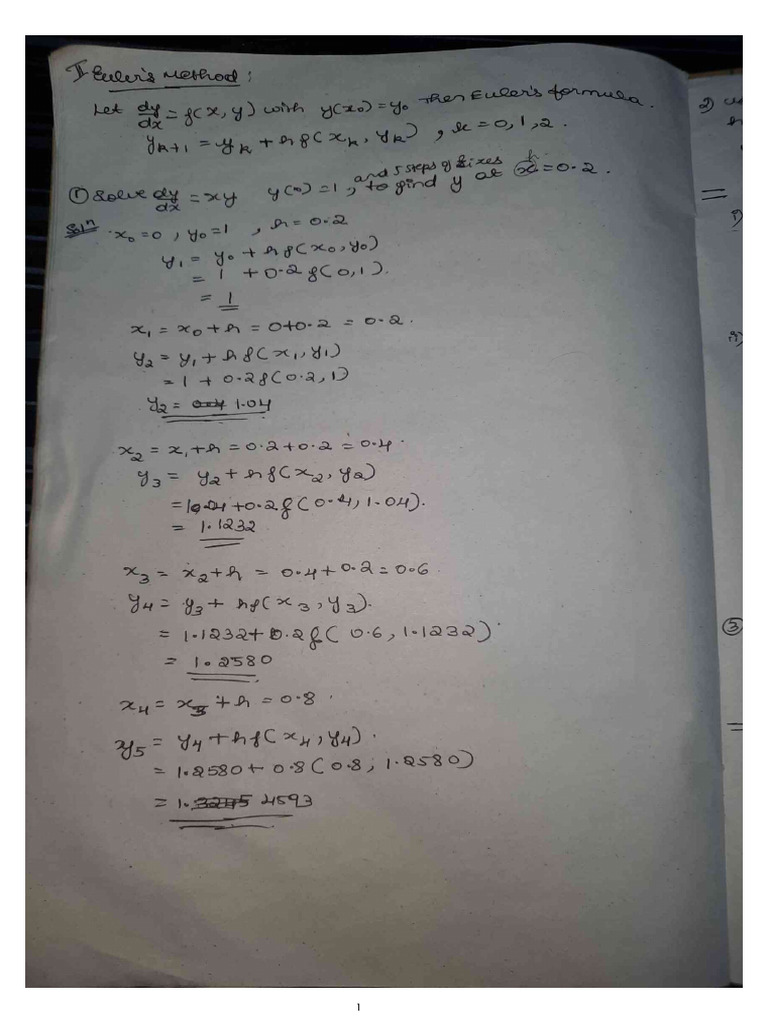 II Euler's Method :
Let dy/dx = f(x, y) with y(x0) = y0 Then Euler's formula.
yk+1 = yk + h f(xk, yk) , k = 0, 1, 2.
and 5 steps of sizes
① Solve dy/dx = xy y(0) = 1, to find y at h = 0.2.
Soln x0 = 0, y0 = 1 , h = 0.2
y1 = y0 + h f(x0, y0)
= 1 + 0.2 f(0, 1).
= 1
x1 = x0 + h = 0+0.2 = 0.2.
y2 = y1 + h f(x1, y1)
= 1 + 0.2 f(0.2, 1)
y2 = 1.04
x2 = x1 + h = 0.2 + 0.2 = 0.4.
y3 = y2 + h f(x2, y2)
= 1.04 + 0.2 f(0.4, 1.04).
= 1.1232
x3 = x2 + h = 0.4 + 0.2 = 0.6
y4 = y3 + h f(x3, y3).
= 1.1232 + 0.2 f(0.6, 1.1232)
= 1.2580
x4 = x3 + h = 0.8
y5 = y4 + h f(x4, y4).
= 1.2580 + 0.8 (0.8, 1.2580)
= 1.4593
2)
i)
③
1